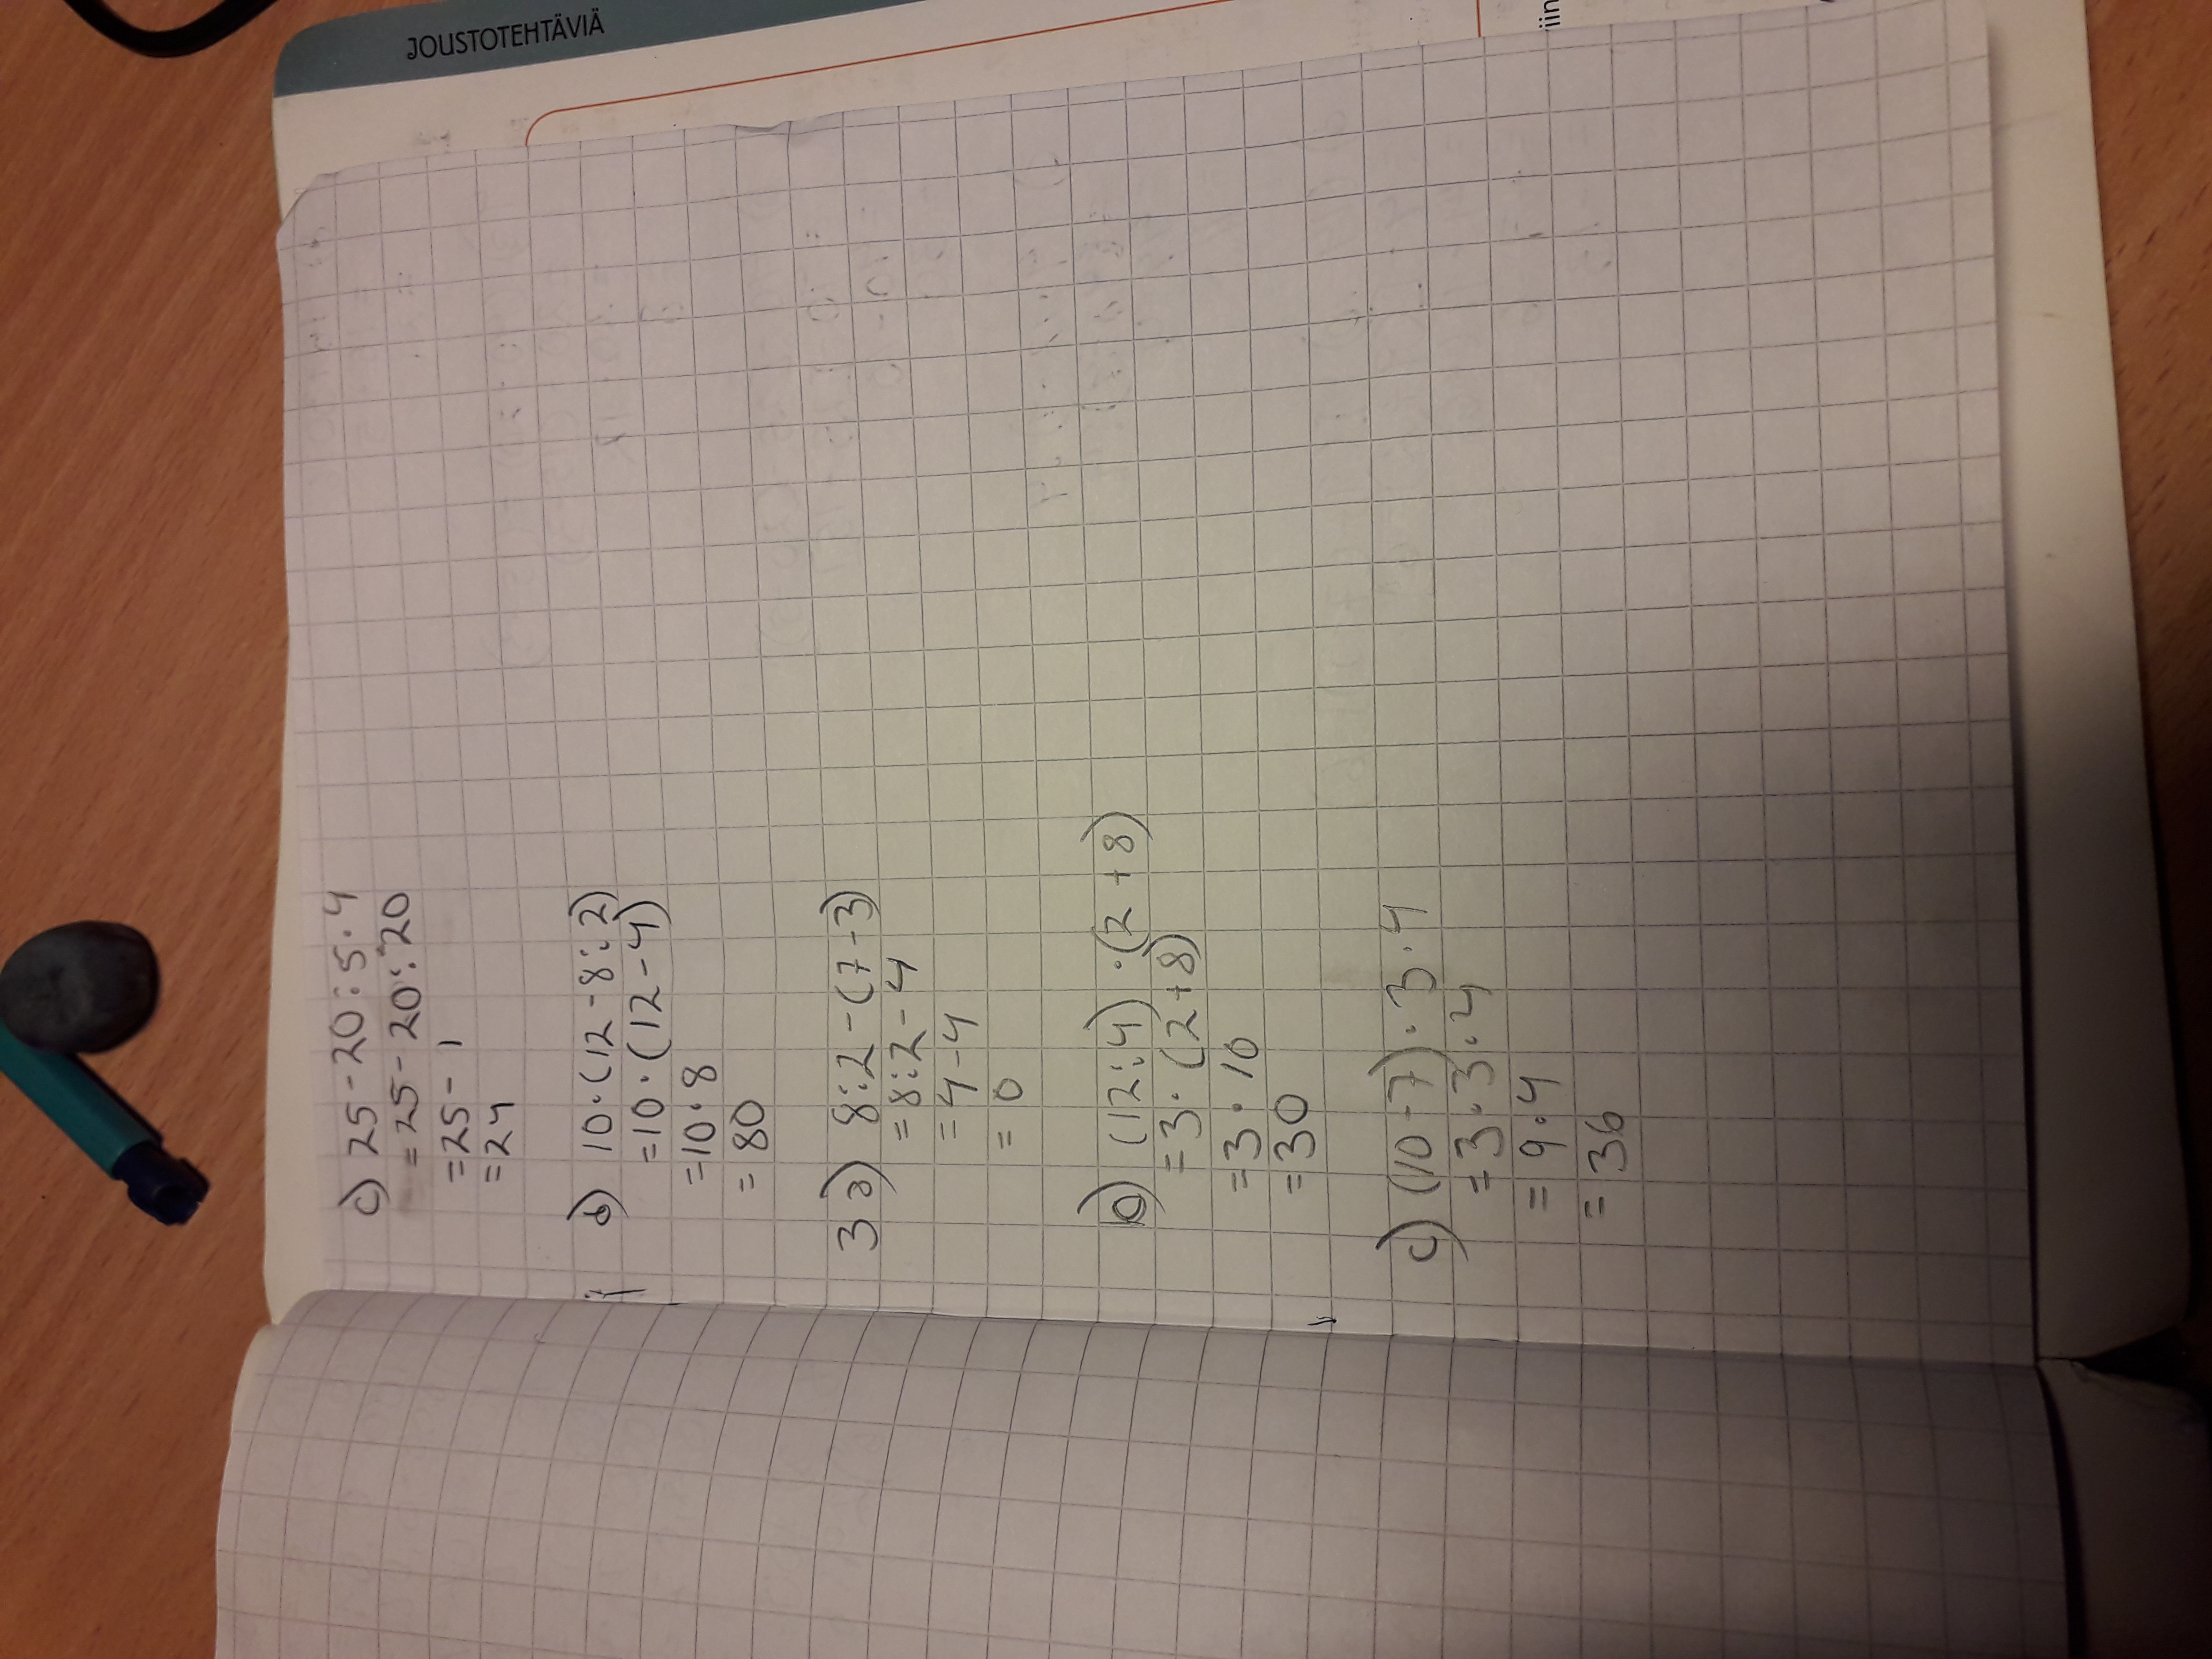 JOUSTOTEHTÄVIÄ
iin
c) 25-20:5·4
=25-20:20
=25-1
=24
b) 10·(12-8:2)
=10·(12-4)
=10·8
=80
3 a) 8:2-(7-3)
=8:2-4
=4-4
=0
b) (12:4)·(2+8)
=3·(2+8)
=3·10
=30
c) (10-7)·3·4
=3·3·4
=9·4
=36